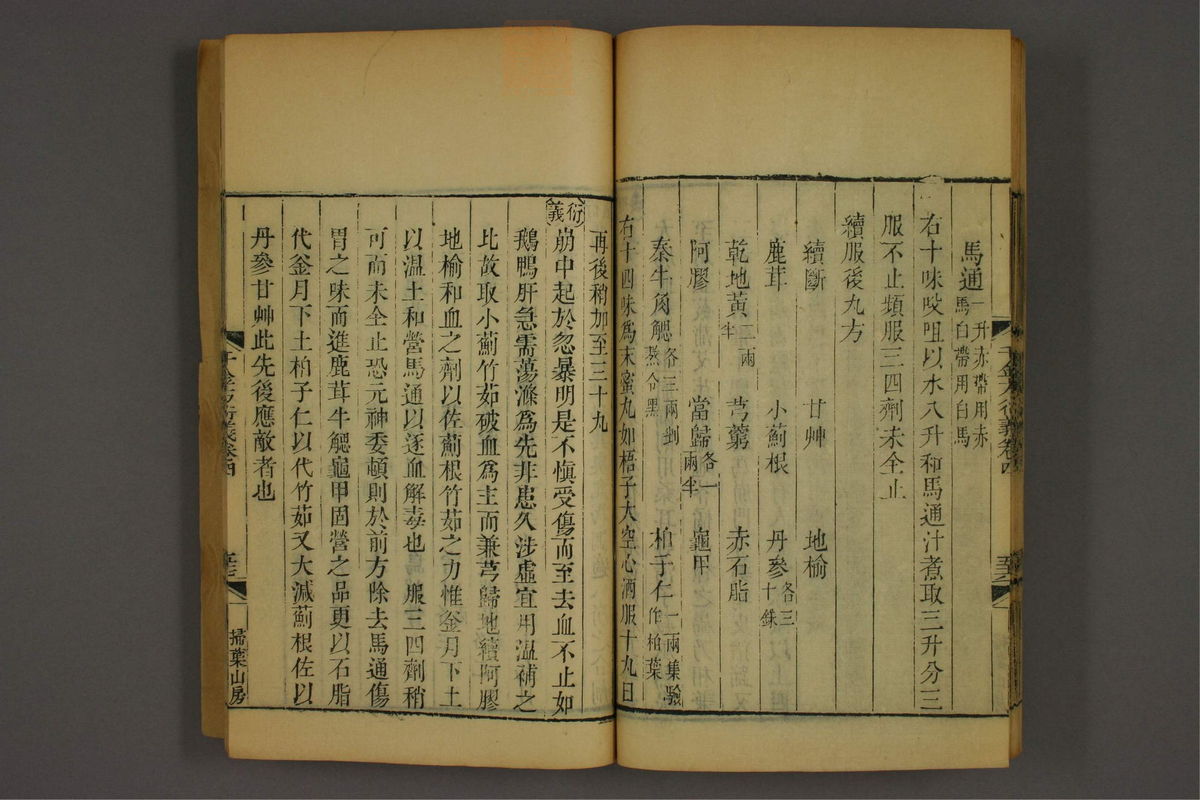 馬通一升赤帶用赤馬白帶用白馬
右十味㕮咀以水八升和馬通汁煮取三升分三
服不止頻服三四劑未全止
續服後九方
續斷 甘艸 地榆
鹿茸 小薊根 丹參各三十銖
乾地黃二兩半 芎藭 赤石脂
阿膠 當歸各一兩半 龜甲
秦牛角䚡各三兩剉熬令黑 柏子仁一兩集驗作柏葉
右十四味爲末蜜丸如梧子大空心酒服十丸日
再後稍加至三十丸
衍義 崩中起於忽暴明是不愼受傷而至去血不止如
鵝鴨肝急需蕩滌爲先非患久涉虛宜用溫補之
比故取小薊竹茹破血爲主而兼芎歸地續阿膠
地榆和血之劑以佐薊根竹茹之力惟釡月下土
以温土和營馬通以逐血解毒也 服三四劑稍
可而未全止恐元神委頓則於前方除去馬通傷
胃之味而進鹿茸牛䚡龜甲固營之品更以石脂
代釡月下土柏子仁以代竹茹又大減薊根佐以
丹參甘艸此先後應敵者也
掃葉山房